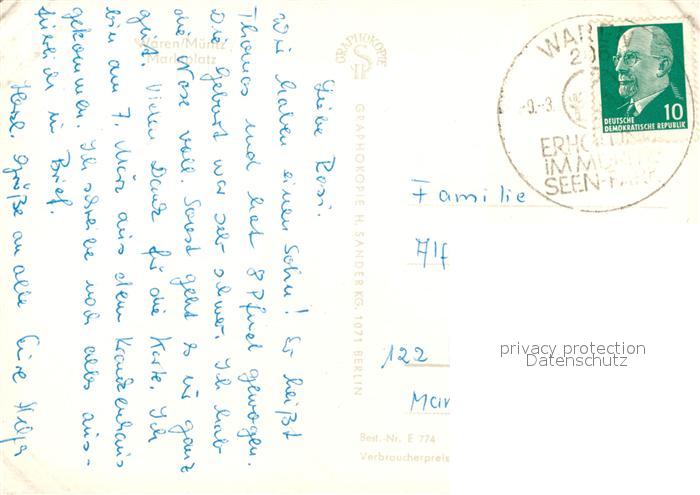 Waren/Müritz
Marktplatz
Liebe Rosi!
Wir haben einen Sohn! Er heißt
Thomas und hat 8 Pfund gewogen.
Die Geburt war sehr schwer. Ich hab
die Nase voll. Sonst geht es mir ganz
gut. Vielen Dank für die Karte. Ich
bin am 7. März aus dem Krankenhaus
gekommen. Ich schreibe noch alles aus-
führlich im Brief.
Herzl. Grüße an alle Eure
GRAPHOKOPIE
GRAPHOKOPIE H. SANDER KG · 1071 BERLIN
WAR
20
-9.-3.
ERHOL
IM MÜRITZ
SEEN-PARK
10
DEUTSCHE
DEMOKRATISCHE REPUBLIK
Familie
Alf
122
Mar
privacy protection
Datenschutz
Best.-Nr. E 774
Verbraucherpreis